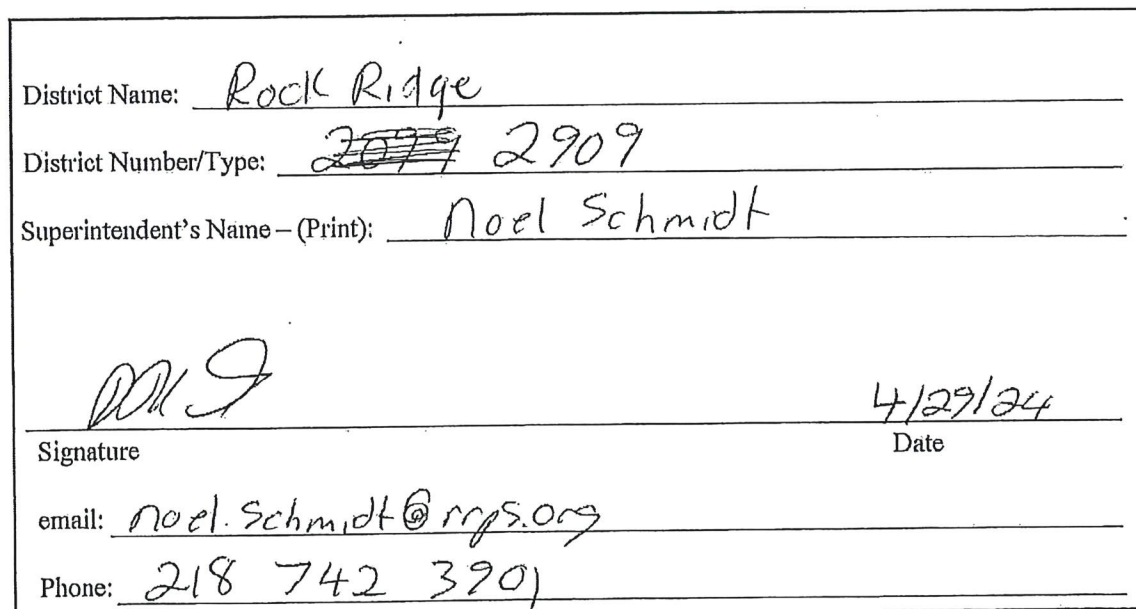 District Name: Rock Ridge
District Number/Type: 2909
Superintendent's Name – (Print): Noel Schmidt
4/29/24
Signature Date
email: noel.schmidt@rrps.org
Phone: 218 742 3901